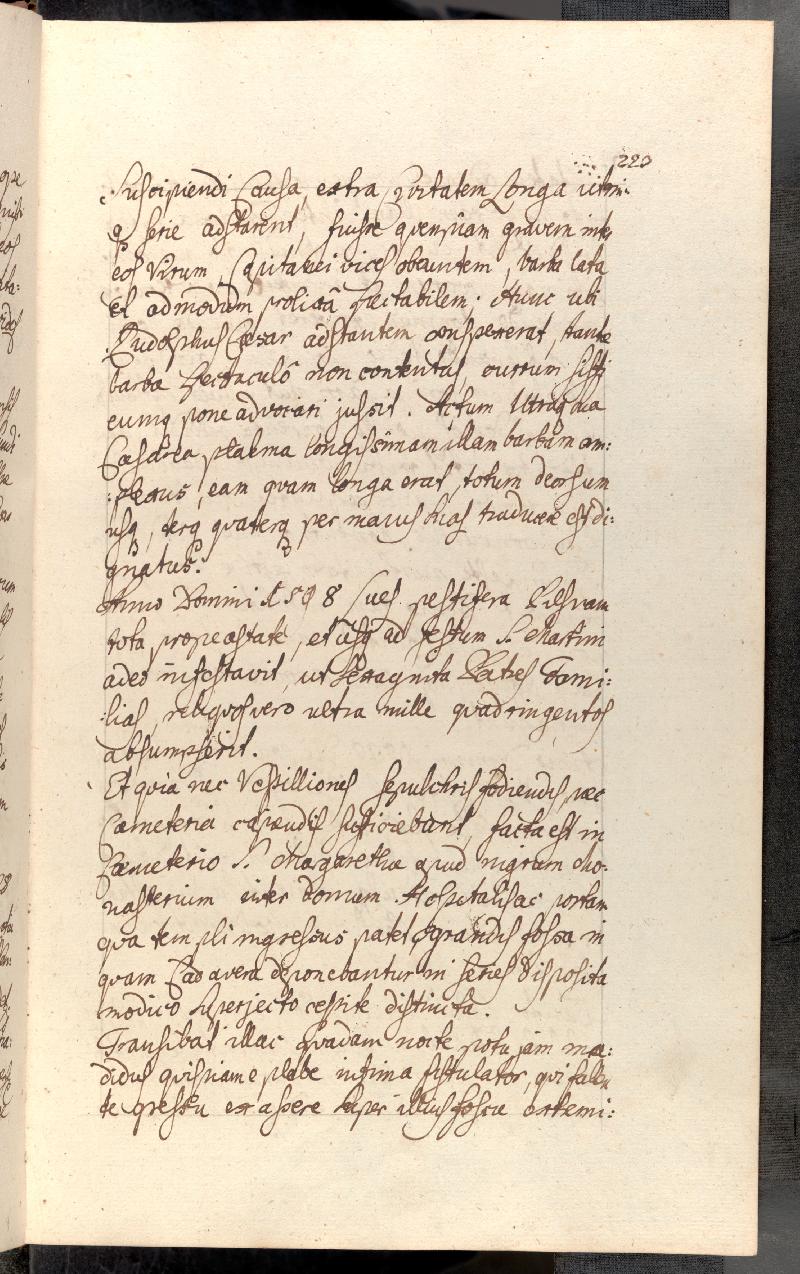 223
Suscipiendi Causa, extra Civitatem Longa utrin:
q3 serie adstarent, fuisse quempiam gravem inter
eos Virum, Capitanei vices obeuntem, barba lata
et admodum prolixa spectabilem; Hunc ubi
Rudolphus Caesar adstantem conspexerat, stante
barbae spectaculo non contentus, currum sisti
eumq pone advocari jussit. Actum Utraq ma
Caesarea palma longissimam illam barbam am:
:plexus, eam quam longa erat, totum deorsum
usq3, terq quaterq3 per manus suas traducere est di:
gnatus.
Anno Domini 1598 Lues pestifera Pilsnam
tota prope aestate, et usq ad festum S. Martini
adeo infestavit, ut sexaginta Patres Fami:
:lias, reliquos vero ultra mille quadringentos
absumpserit.
Et quia nec Vespilliones sepulchris fodiendis, nec
Caemeteria capiendis sufficiebant, facta est in
Caemeterio S. Margarethae apud nigrum Mo:
nasterium inter domum Hospitalis ac portam
qua templi ingressus patet, grandis fossa in
quam Cadavera deponebantur in series disposita
modico superjecto cespite distincta.
Transibat illac quadam nocte potu jam ma:
didus quispiam e plebe infima fistulator, qui fallen
te gressu ex aspere super illius fossae